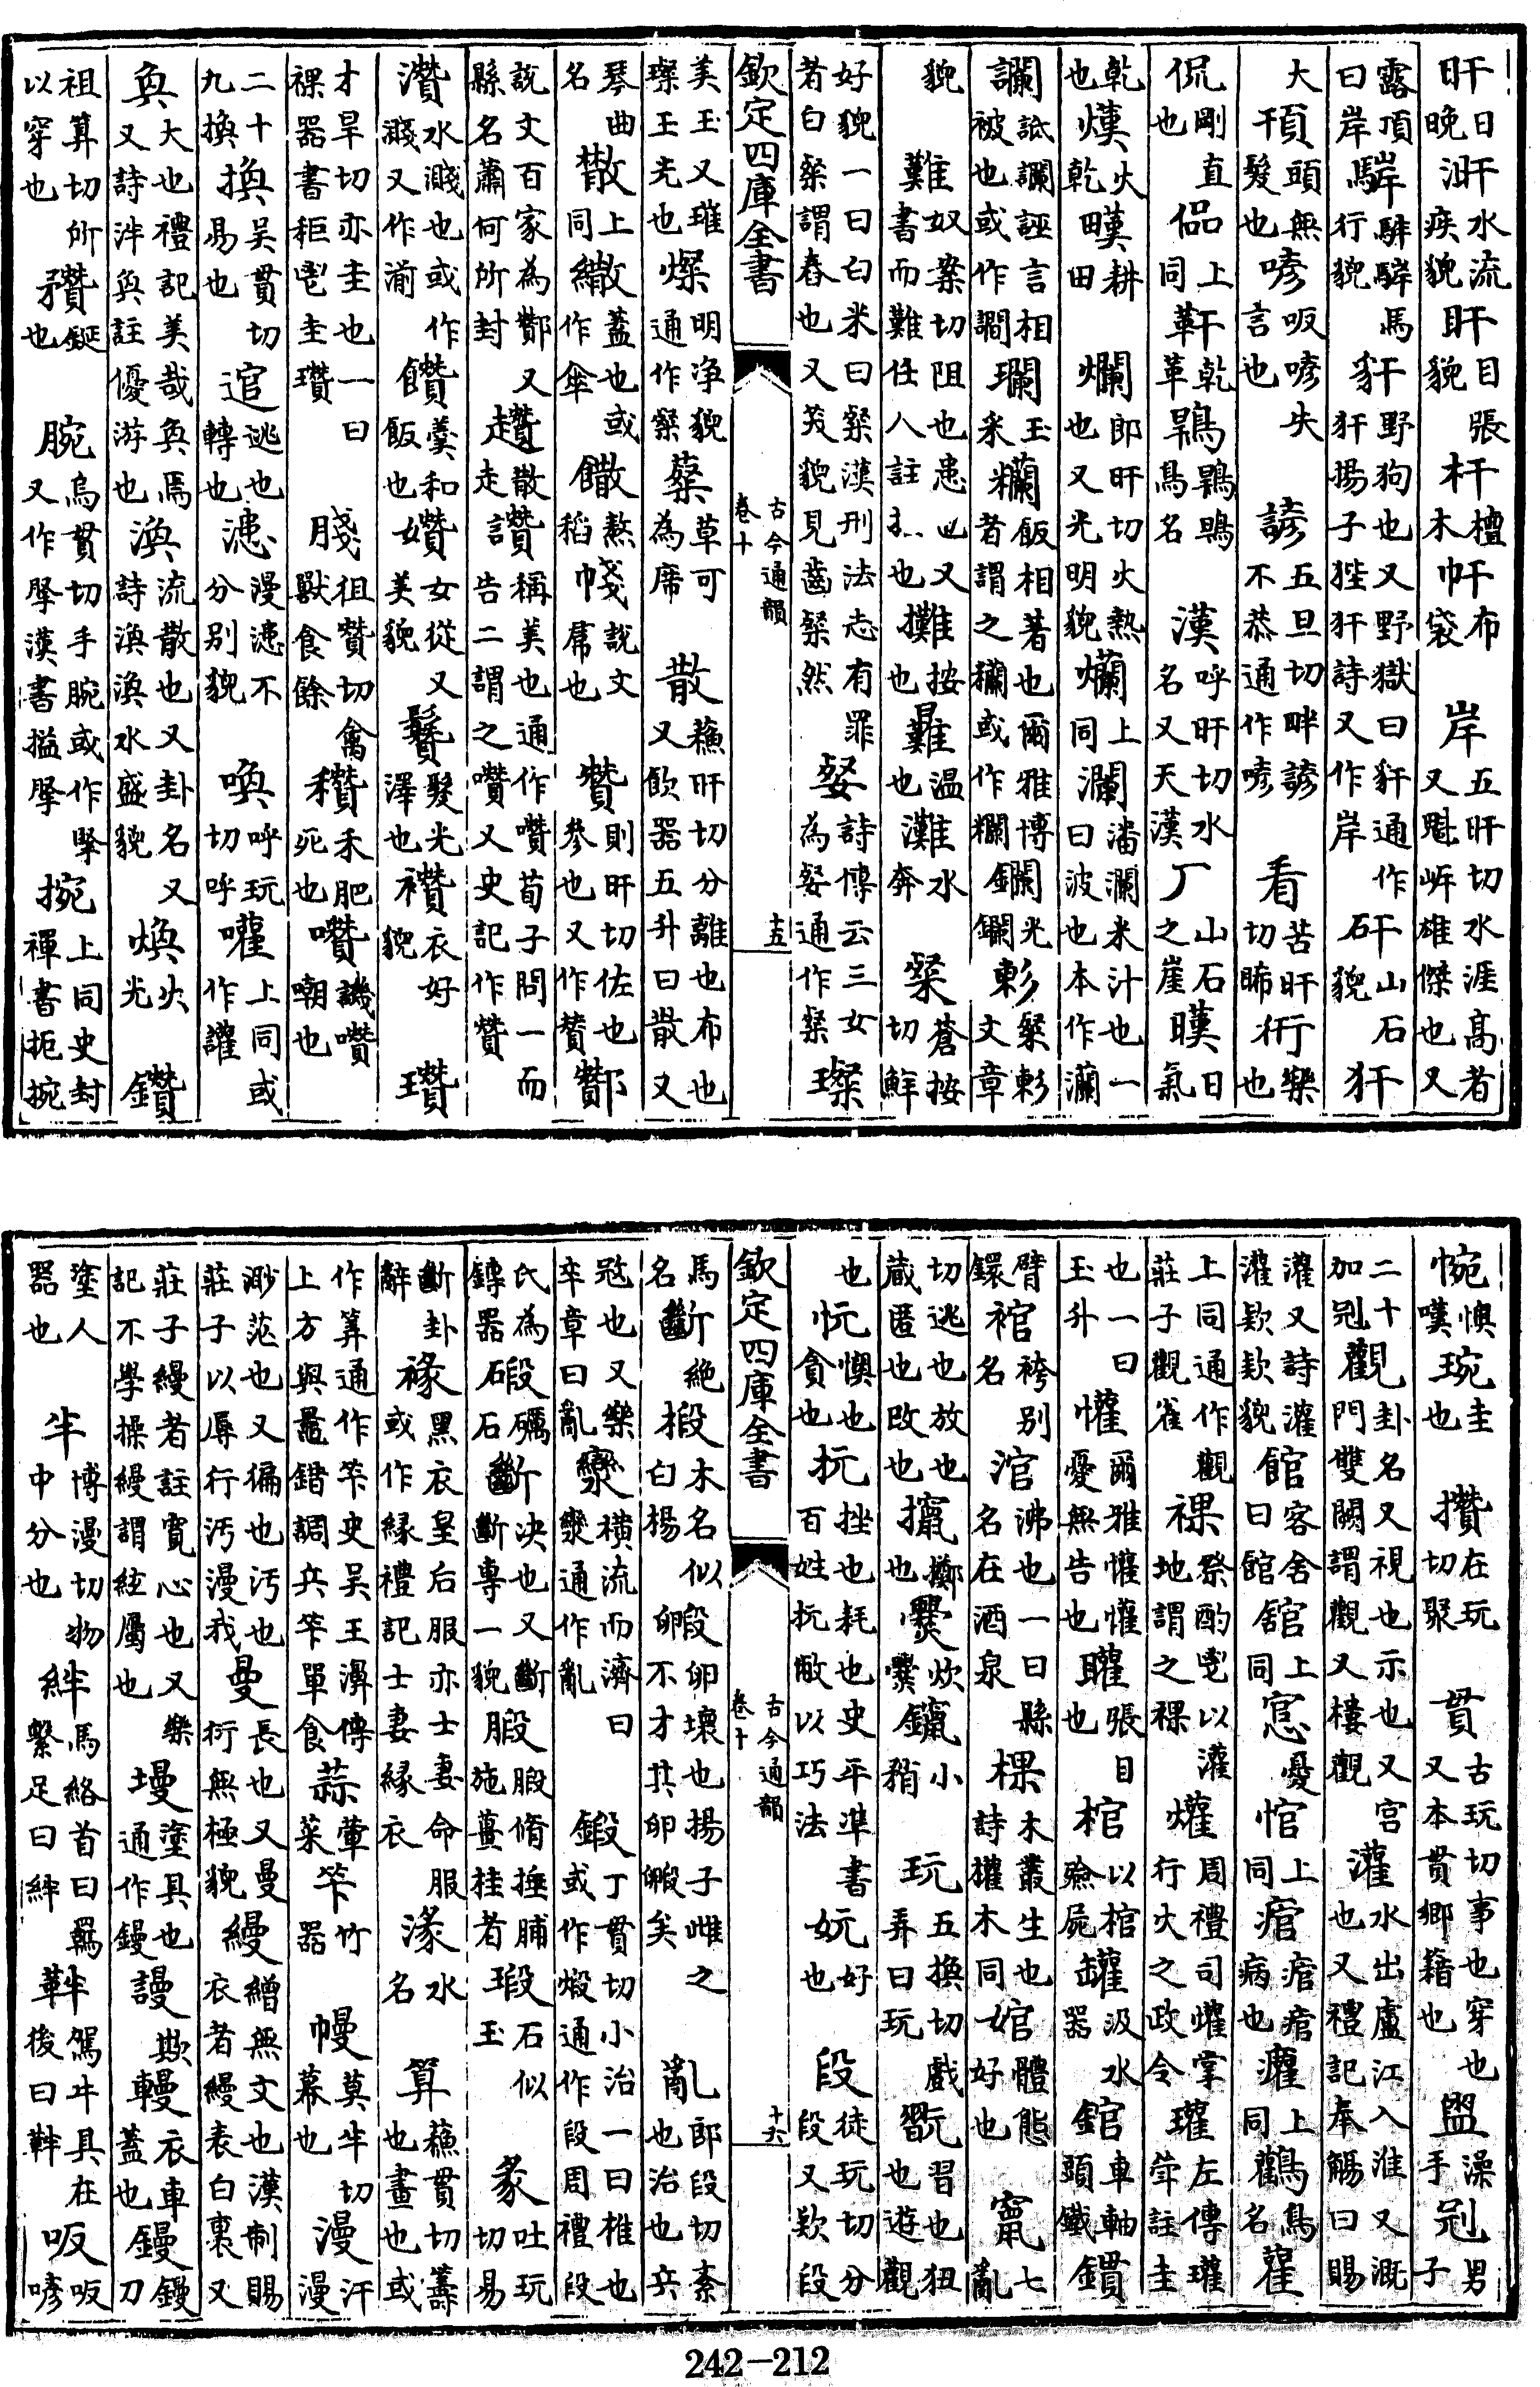 旰日晚汗水流疾貌盰目張貌杆檀木布袋岸五旰切水涯高者又魁㟁雄傑也又
露頂曰岸騂馬行貌豻野狗也又野獄曰豻通作犴揚子狴犴詩又作岸矸山石貌犴
大頇頭無髮也喭㕭喭失言也諺五旦切畔諺不恭通作喭看苦旰切睎衎樂也
侃剛直也偘上同靬乾革鳱鳱鴠鳥名漢呼旰切水名又天漢厂山石之崖暵日氣
乾也熯火乾暵耕田爛郎旰切火熱也又光明貌爤上同瀾潘瀾米汁也一曰波也本作灡
讕詆讕誣言相被也或作譋玉采糷飯相著也爾雅博者謂之糷或作糷鑭光鑭文章
貌難奴案切阻也患也又書而難任人註拒也攤按也溫也灘水奔粲蒼按切鮮
好貌一曰白米曰粲漢刑法志有罪者白粲謂舂也又笑貌見齒粲然㛑詩傳云三女為㛑通作粲璨
欽定四庫全書 古今通韻 卷十 十五
美玉又璀璨玉光也燦明浄貌通作粲蔡草可為席散蘇旰切分離也布也又飲器五升曰散又
琴曲名㪔上同繖蓋也或作傘饊熬稻帴說文帬也贊則旰切佐也參也又作賛酇
說文百家為酇又縣名蕭何所封趲散走讚稱美也通作囋荀子問一而告二謂之囋又史記作贊
灒水濺也或作濺又作湔饡羹和飯也㜺女從又美貌䰖髮光澤也襸衣好貌瓚
才旱切亦圭也一曰祼器書秬鬯圭瓚徂贊切禽獸食餘穳禾肥死也囋譏囋嘲也
二十九換換吳貫切易也逭逃也轉也漶漫漶不分別貌喚呼玩切呼嚾上同或作讙
奐大也禮記美哉奐焉又詩泮奐註優游也渙流散也又卦名又詩渙渙水盛貌煥火光鑽
祖算切所以穿也鋋也腕烏貫切手腕或作掔又作掔漢書搤掔捥上同史封禪書扼捥
惋懊嘆琬圭也攢在玩切聚貫古玩切事也穿也又本貫鄉籍也盥澡手冠男子
二十加冠觀卦名又視也示也又宮門雙闕謂觀又樓觀灌水出廬江入淮又溉也又禮記奉觴曰賜
灌又詩灌灌欵欵貌館客舍曰館舘上同悹憂悺上同痯痯痯病也瓘上同鸛鳥名雚
上同通作觀莊子觀雀祼祭酌鬯以灌地謂之祼爟周禮司爟掌行火之政令瓘左傳瓘斝註圭
也一曰玉升懽爾雅懽懽憂無告也矔張目也棺以棺殮屍罐汲水器錧車軸頭鐵鑵
臂鐶祒袴别名涫沸也一曰縣名在酒泉樌木叢生也詩㰌木同婠體態好也竄七亂
切逃也放也藏匿也改也攛擲也爨炊爨鑹小矟玩五換切戲弄曰玩翫習也狃也遊觀
也忨懊也貪也抏挫也耗也史平準書百姓抏敝以巧法妧好也段徒玩切分段又欵段
欽定四庫全書 古今通韻 卷十 十六
馬名斷絶椵木名似白楊毈卵壞也揚子雌之不才其卵毈矣亂郎段切紊也治也兵
寇也又樂卒章曰亂灓橫流而濟曰灓通作亂鍛丁貫切小冶一曰椎也或作煅通作段周禮段
氏為鎛器碫礪石斷決也又斷斷專一貌腶腶脩捶脯施薑桂者瑖石似玉彖吐玩切易
斷卦辭褖黑衣皇后服亦士妻命服或作緣禮記士妻緣衣湪水名算蘇貫切籌也畫也或
作筭通作笇史吳王濞傳上方與鼂錯調兵笇單食蒜葷菜笇竹器幔莫半切幕也漫汗漫
渺茫也又徧也汚也莊子以辱行汚漫我曼長也又曼衍無極貌縵繒無文也漢制賜衣者縵表白裏又
莊子縵者註寛心也又樂記不學操縵謂絃屬也墁塗具也通作鏝謾欺䡬衣車蓋也鏝鏝刀
塗人器也半博漫切物中分也絆馬絡首曰羈繫足曰絆靽駕牛具在後曰靽㕭㕭喭
242－212